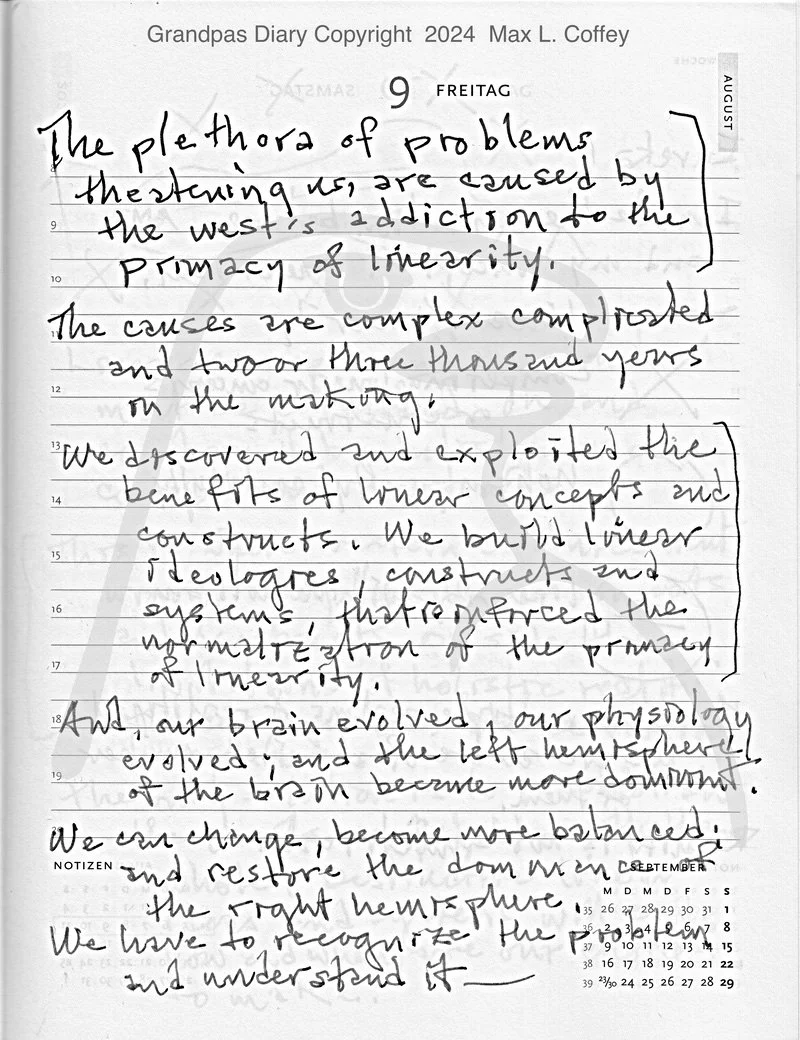 Grandpas Diary Copyright 2024 Max L. Coffey
9 FREITAG
AUGUST
The plethora of problems
theatening us, are caused by
the west's addiction to the
primacy of linearity.
The causes are complex complicated
and two or three thousand years
in the making.
We discovered and exploited the
benefits of linear concepts and
constructs. We build linear
ideologies, constructs and
systems, that reinforced the
normalization of the primacy
of linearity.
And, our brain evolved, our physiology
evolved; and the left hemisphere
of the brain became more dominant.
We can change, become more balanced;
and restore the dominance of
the right hemisphere.
We have to recognize the problem
and understand it—
9
10
12
13
14
15
16
17
18
19
NOTIZEN
SEPTEMBER
M D M D F S S
35 26 27 28 29 30 31 1
36 2 3 4 5 6 7 8
37 9 10 11 12 13 14 15
38 16 17 18 19 20 21 22
39 23/30 24 25 26 27 28 29